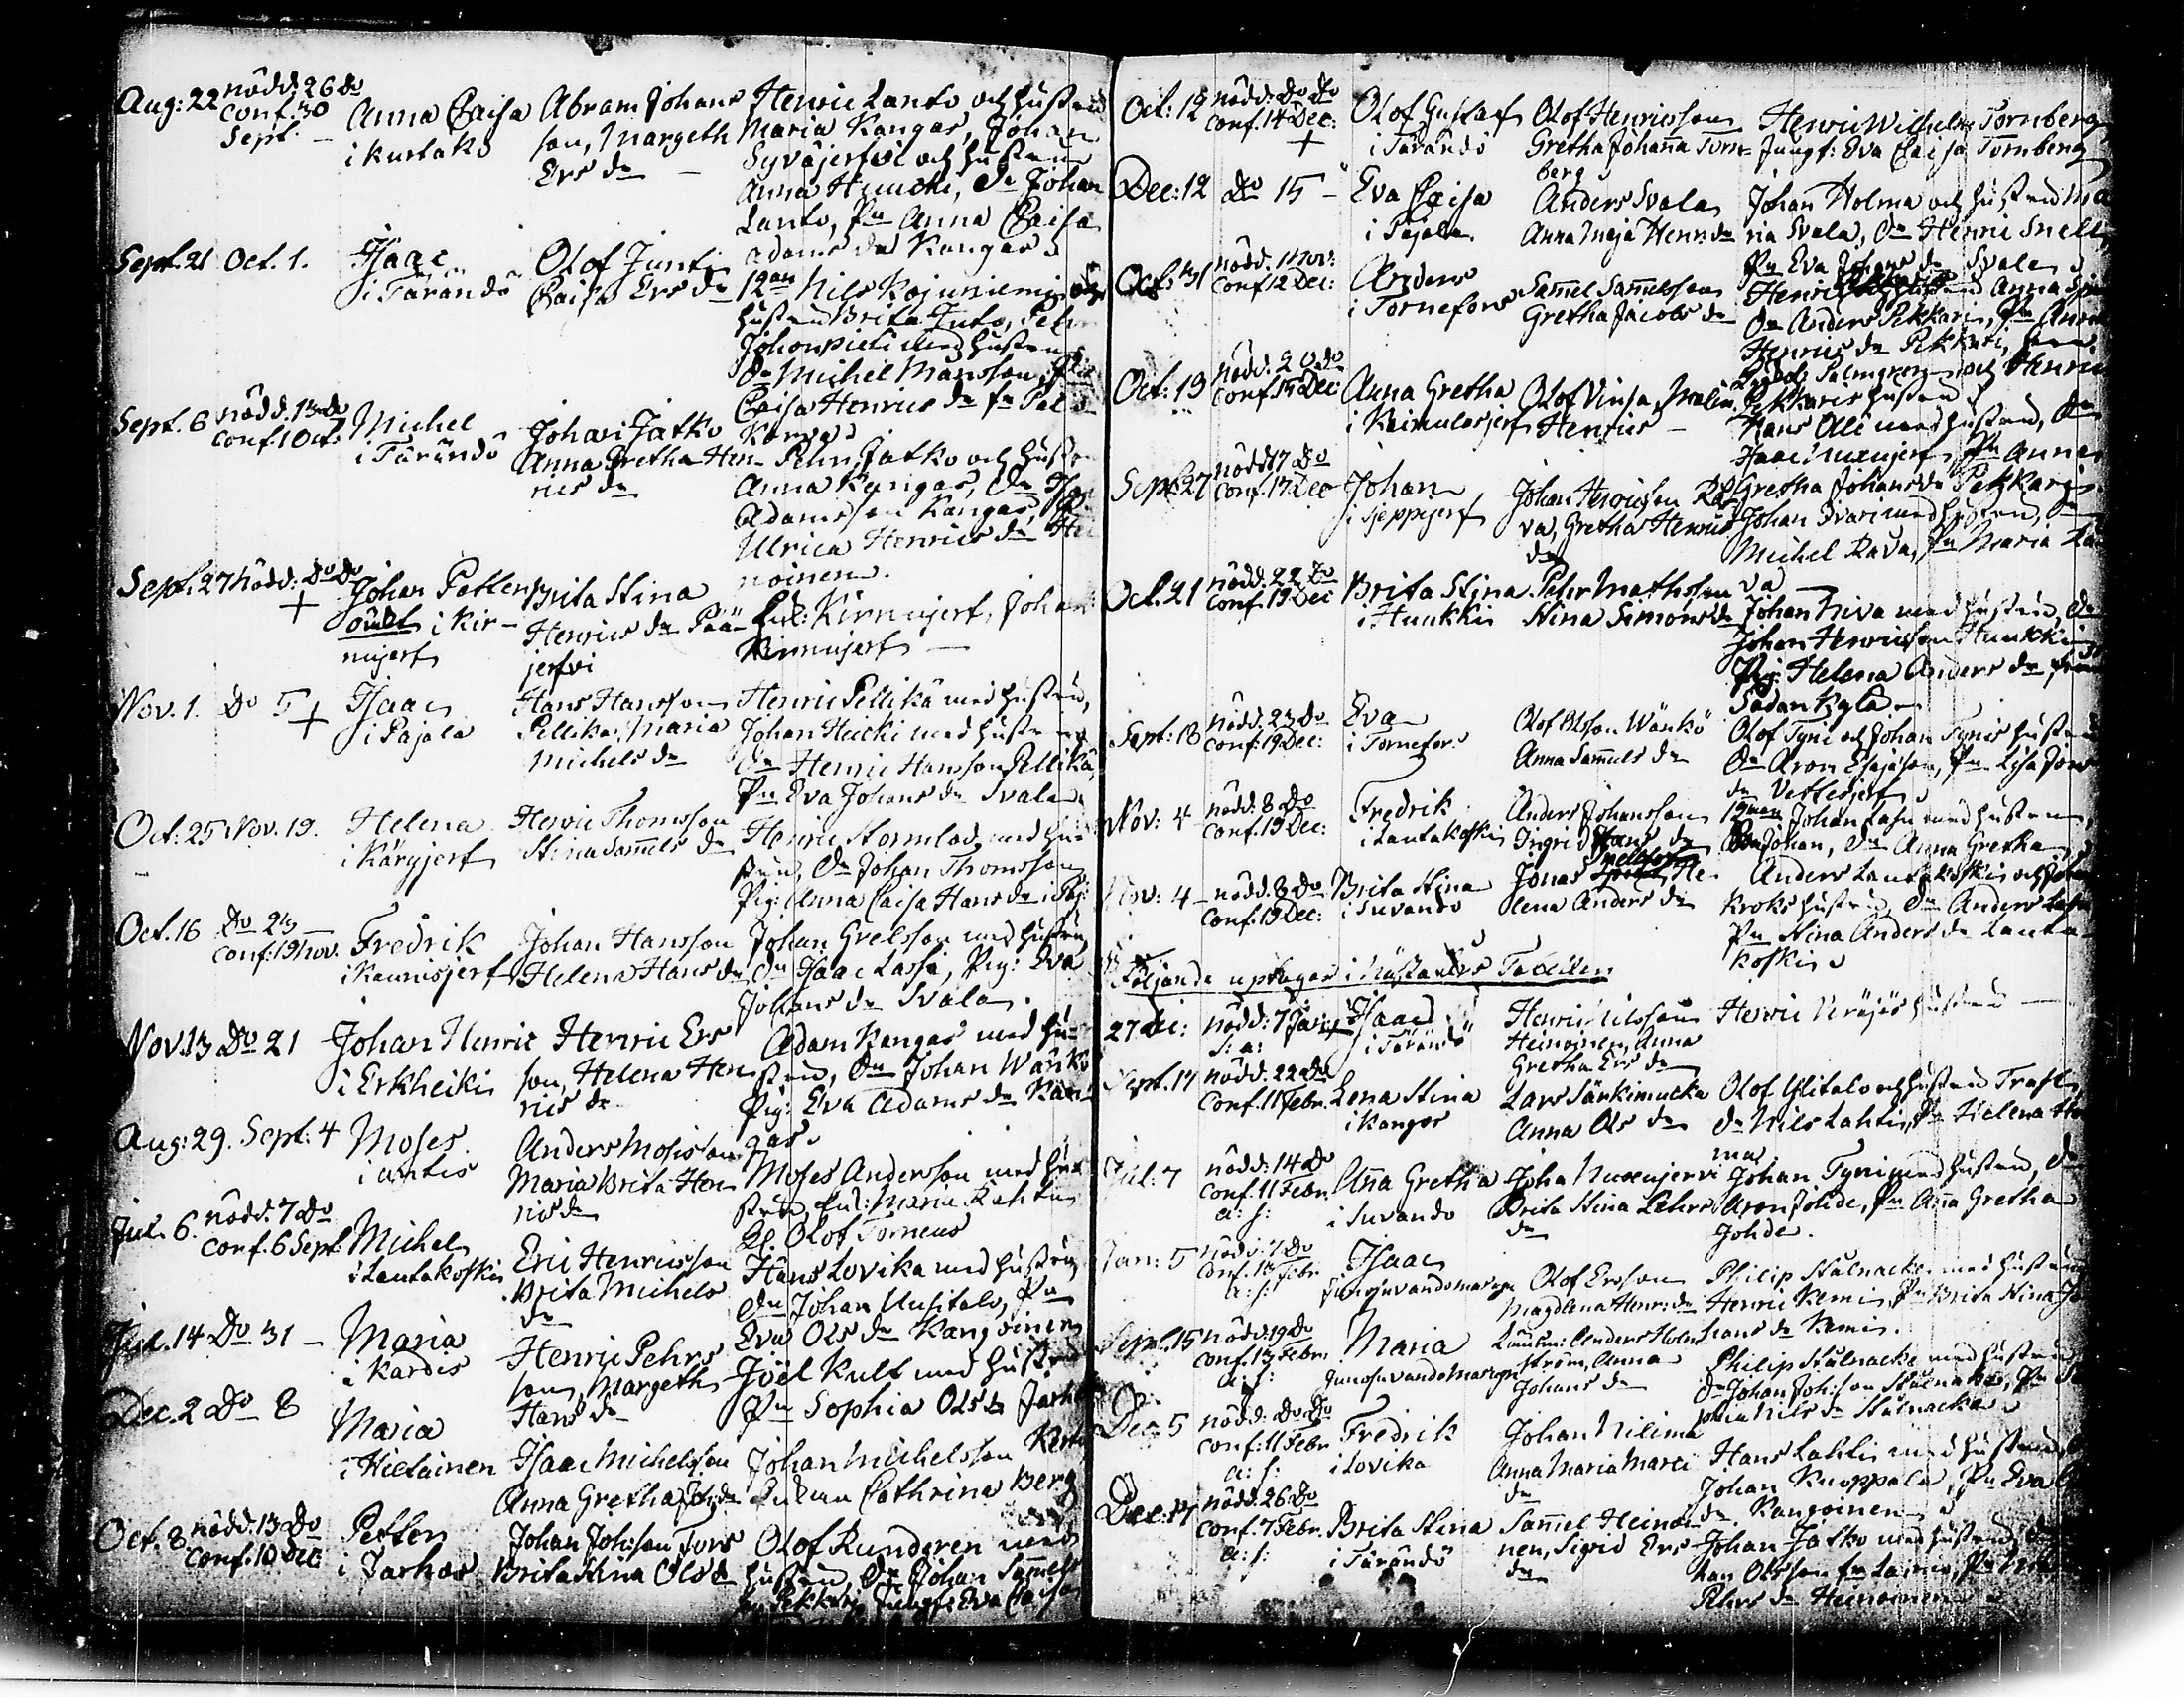 Aug: 22 nödd: 26 do
conf. 30
Sept. –
Anna Caisa
i Kurtako
Abram Johans
son, Margeth
Ers dr –
Henric Lanto och hustrun
Maria Kangas, Johan
Syväjerfvi och hustrun
Anna Huuchi, Dr Johan
Lanto, Pn Anna Caisa
Adams dr Kangas
Sept. 21 Oct. 1.
Isaac
i Tärändö
Olof Junti
Caisa Ers dr
12an Nils Kojuniemi och
hustrun Brita Juto, Pehr
med hustrun
Dr Michel Mansson, Pn
Caisa Henrics dr fr Palo
Korva
Sept. 6 nödd. 13 do
conf. 1 Oct.
Michel
i Tärändö
Johan Jatko
Anna Gretha Hen-
rics dr
Pehr Jatko och hustrun
Anna Kangas, Dr Is.
Adamsson Kangas, P.
Ulrica Henrics dr Hei
noinen.
Sept. 27 nödd: do do
+
Johan Petter
oäkt i Kir-
nujerf
Brita Stina
Henrics dr Pää-
jerfvi
Kirnujerf, Johan
Kirnujerf –
Nov. 1. Do 5
+
Isaac
i Pajala
Hans Hansson
Pellika, Maria
Michels dr
Henric Pellikä med hustrun,
Johan Heicki med hustrun
Dr Henric Hansson Pellikä,
Pn Eva Johans dr Svala
Oct: 25 Nov. 19.
Helena
i Käryjerf
Henric Thomsson
Stina Samels dr
Henric Stormlod med hus
trun, Dr Johan Thomsson
Pig: Anna Caisa Hans dr i
Oct. 16 Do 23 –
conf: 19 Nov.
Fredrik
i Kaunisjerf
Johan Hansson
Helena Hans dr
Johan Grelsson med hustrun
Dr Isaac Lassi, Pig: Eva
Johans dr Svala.
Nov. 13 Do 21
Johan Henric
i Erkheiki
Henric Ers
son, Helena Hen
rics dr
Adam Kangas med hu-
strun, Dr Johan Wänkö
Pig: Eva Adams dr Kan-
gas
Aug: 29. Sept: 4
Moses
i Antis
Anders Mosisson
Maria Brita Hen
rics dr
Moses Andersson med hu
strun, Enk: Maria Rahtu
Dr Olof Torneus
Jul. 6. nödd. 7 Do
conf. 6 Sept.
Michel
i Lautakoski
Eric Henricsson
Brita Michels
dr
Hans Lovika med hustru
Dr Johan Uusitalo, Pn
Eva Ols dr Kangoinen
Jul. 14 Do 31 –
Maria
i Kardis
Henric Pehrs
son, Margeth
Hans dr
Joel Kult med hustru
Pn Sophia Ols dr Jarh
Dec. 2 Do 8
Maria
i Hietainen
Isaac Michelsson
Anna Gretha Joh. dr
Johan Michelsson
Enkan Cathrina Berg
Oct. 8. nödd. 13 Do
conf. 10 Dec
Petter
i Jarhois
Johan Johsson Fors
Brita Stina Ols dr
Olof Runderen med
hustrun Dr Johan Samels
Jungf: Eva Caisa
Oct: 12 nödd: Do Do
conf. 14 Dec:
+
Olof Gustaf
i Tärändö
Olof Henricsson
Gretha Johanna Törn-
berg
Henric Wilhelm Törnberg
Jungf: Eva Caisa Törnberg
Dec: 12 Do 15 –
Eva Caisa
i Pajala
Anders Svala
Anna Maja Henr: dr
Johan Holma och hustrun Ma
ria Svala, Dr Henric Snell,
Pn Eva Johans dr Svala
Oct: 31 nödd. 1 Nov:
conf. 12 Dec:
Anders
i Tornefors
Samel Samelsson
Gretha Jacobs dr
Henric Anna
Dr Anders Pekkari, Pn Anna
Henrics dr Pekkari,
Palmgren och Henric
Pekkaris hustru
Oct: 19 nödd. 20 do
conf. 15 Dec:
Anna Gretha
i Kaimulasjerf
Olof Vinsa, Malin
Henrics –
Hans Ali med hustrun, Dr
Isaac Muxujerf, Pn Anna
Gretha Johans dr Pekkari
Sept: 27 nödd 17 Do
conf. 17 Dec
Johan
i Sjeppijerf
Johan Henricsson Ra
va, Gretha Henrics
dr
Johan Ivari med hustrun, Dr
Michel Rava, Pn Maria Ra
va –
Oct. 21 nödd. 22 Do
conf. 19 Dec
Brita Stina
i Huukki
Pehr Mathsson
Stina Simons dr
Johan Niva med hustrun, Dr
Johan Henricsson Huukki
Pig: Helena Anders dr från
Sodankylä
Sept: 18 nödd. 23 Do
conf: 19 Dec:
Eva
i Tornefors
Olof Olsson Wänkö
Anna Samuels dr
Olof Tyni och Johan Tynis hustru
Dr Aron Esajason, Pn Lisa Jons
dr Vettesjerf
Nov: 4 nödd. 8 Do
conf. 19 Dec:
Fredrik
i Lautakoski
Anders Johansson
Ingrid Hans dr
12man Johan Lasu med hustrun,
Johan, Dr Anna Gretha
Nov: 4 – nödd. 8 Do
conf. 19 Dec:
Brita Stina
i Juvando
Jonas He-
lena Anders dr
Anders Lautakoski och Johan
Kroks hustru, Dr Anders Lasu
Pn Stina Anders dr Lauta-
koski
Följande uptages i nästa års Tabeller
27 Dec: nödd: 7 Jan:
s: a:
Isaac
i Tärändö
Henric Nilsson
Heinoinen, Anna
Gretha Ers dr
Henric Kröjis hustru –
Sept. 17 nödd. 22 Do
conf. 11 Febr.
Lena Stina
i Kangos
Lars Särkimucka
Anna Ols dr
Olof Ylitalo och hustrun
Dr Nils Lahti, Pn Helena
Jul: 7 nödd: 14 Do
conf. 11 Febr.
a: s:
Anna Gretha
i Juvando
Joha Muxujervi
Brita Stina Pehrs
dr
Johan Tyni med hustrun, Dr
Aron Johde, Pn Anna Gretha
Johde.
Jan: 5 nödd. 7 Do
conf. 13 Febr.
a: s:
Isaac
Junosuvandomarugn
Olof Ersson
Magdlena Henr: dr
Philip Stålnacke med hustru
Henric Kemi, Pn Brita Stina Jo
hans dr Kemi.
Sept. 15 nödd. 19 Do
conf. 13 Febr.
a: s:
Maria
Junosuvandomarugn
Länsm: Anders Holm
ström, Anna
Johans dr
Philip Stålnacke med hustrun
Dr Johan Johsson Stålnacke, Pn
Nils dr Stålnacke
Dec: 5 nödd. Do Do
conf: 11 Febr.
a: s:
Fredrik
i Lovika
Johan Nilima
Anna Maria Marci
dr
Hans Lahti med hustrun,
Johan Kuoppala, Pn Eva
dr Kangoinen
Dec: 17 nödd. 26 Do
conf. 7 Febr.
a: s:
Brita Stina
i Tärändö
Samel Heinoi-
nen, Sigrid Ers
dr
Johan Jatko med hustrun,
han Olsson fr Lainio, Pn
Pehrs dr Heinoinen